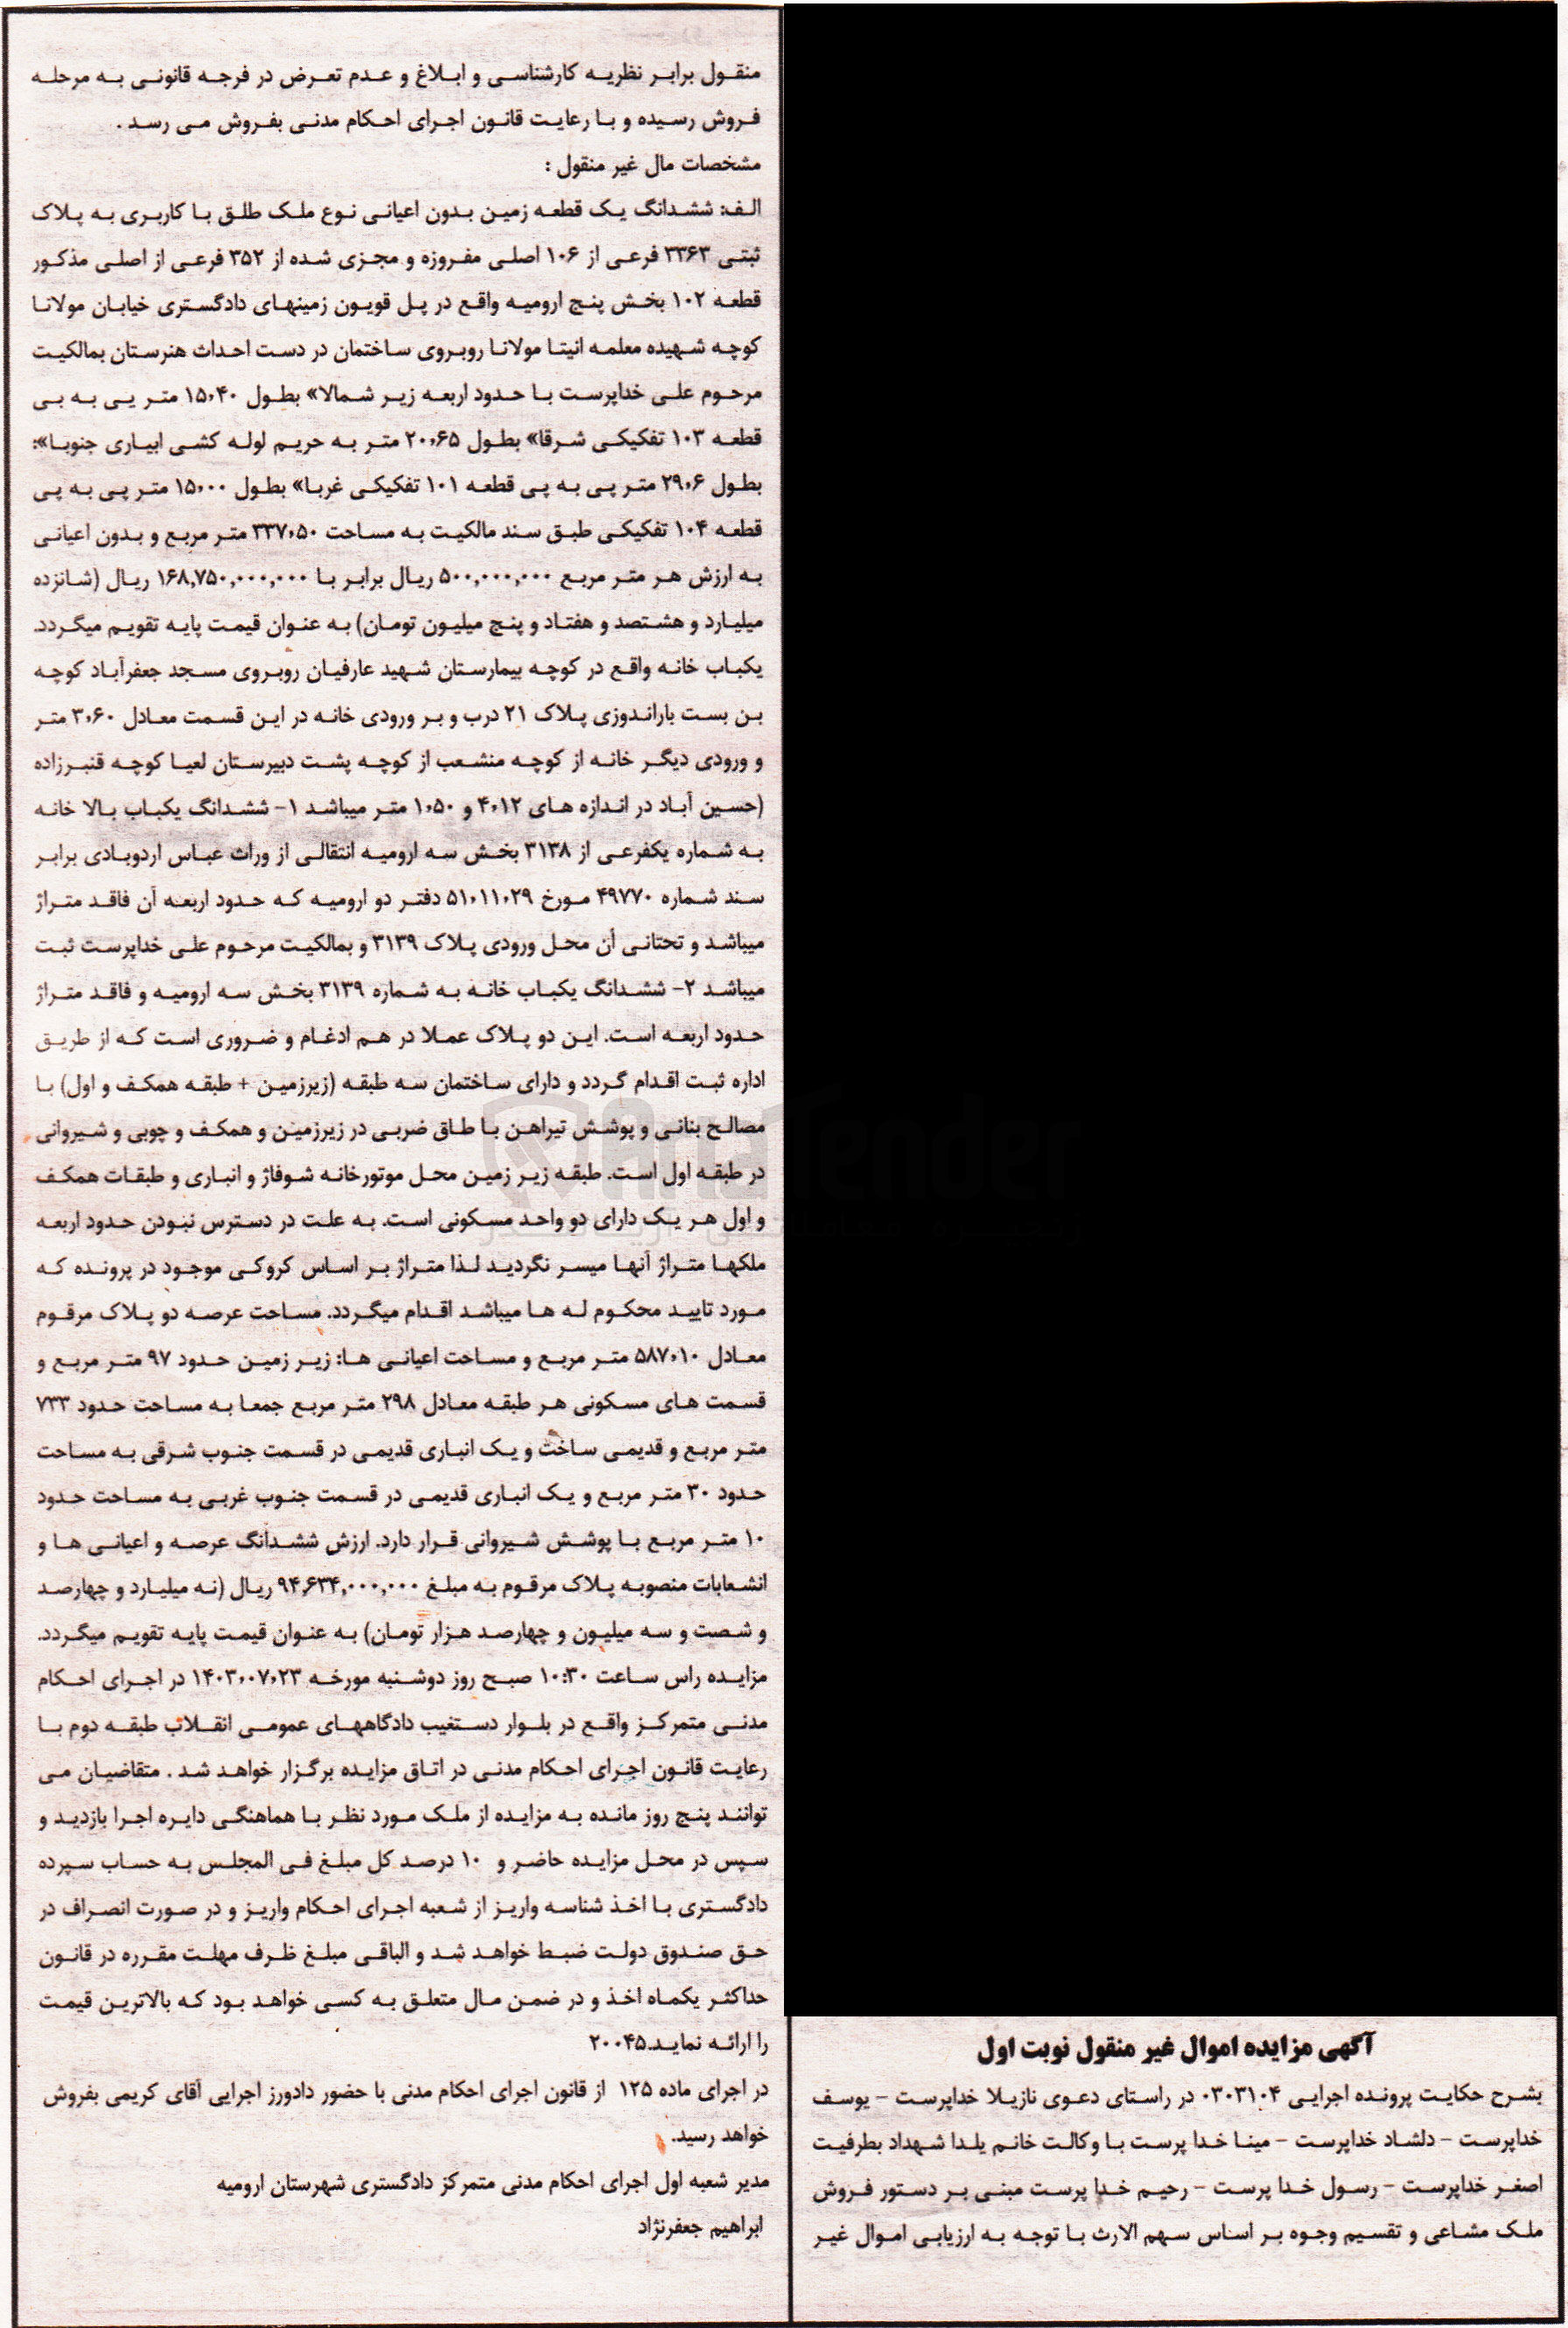 آگهی مزایده اموال غیر منقول نوبت اول
بشرح حکایت پرونده اجرایی ۰۳۰۳۱۰۴ در راستای دعوی نازیلا خداپرست - یوسف
خداپرست - دلشاد خداپرست - مینا خدا پرست با وکالت خانم یلدا شهداد بطرفیت
اصغر خداپرست - رسول خدا پرست - رحیم خدا پرست مبنی بر دستور فروش
ملک مشاعی و تقسیم وجوه بر اساس سهم الارث با توجه به ارزیابی اموال غیر
منقول برابر نظریه کارشناسی و ابلاغ و عدم تعرض در فرجه قانونی به مرحله
فروش رسیده و با رعایت قانون اجرای احکام مدنی بفروش می رسد .
مشخصات مال غیر منقول :
الف: ششدانگ یک قطعه زمین بدون اعیانی نوع ملک طلق با کاربری به پلاک
ثبتی ۳۳۶۳ فرعی از ۱۰۶ اصلی مفروزه و مجزی شده از ۳۵۲ فرعی از اصلی مذکور
قطعه ۱۰۲ بخش پنج ارومیه واقع در پل قویون زمینهای دادگستری خیابان مولانا
کوچه شهیده معلمه انیتا مولانا روبروی ساختمان در دست احداث هنرستان بمالکیت
مرحوم علی خداپرست با حدود اربعه زیر شمالا» بطول ۱۵،۴۰ متر یی به بی
قطعه ۱۰۳ تفکیکی شرقا» بطول ۲۰،۶۵ متر به حریم لوله کشی ابیاری جنوبا»:
بطول ۲۹،۶ متر پی به پی قطعه ۱۰۱ تفکیکی غربا» بطول ۱۵،۰۰ متر پی به پی
قطعه ۱۰۴ تفکیکی طبق سند مالکیت به مساحت ۳۳۷،۵۰ متر مربع و بدون اعیانی
به ارزش هر متر مربع ۵۰۰,۰۰۰,۰۰۰ ریال برابر با ۱۶۸,۷۵۰,۰۰۰,۰۰۰ ریال (شانزده
میلیارد و هشتصد و هفتاد و پنج میلیون تومان) به عنوان قیمت پایه تقویم میگردد.
یکباب خانه واقع در کوچه بیمارستان شهید عارفیان روبروی مسجد جعفرآباد کوچه
بن بست باراندوزی پلاک ۲۱ درب و بر ورودی خانه در این قسمت معادل ۳،۶۰ متر
و ورودی دیگر خانه از کوچه منشعب از کوچه پشت دبیرستان لعیا کوچه قنبرزاده
(حسین آباد در اندازه های ۴،۱۲ و ۱،۵۰ متر میباشد ۱- ششدانگ یکباب بالا خانه
به شماره یکفرعی از ۳۱۳۸ بخش سه ارومیه انتقالی از وراث عباس اردوبادی برابر
سند شماره ۴۹۷۷۰ مورخ ۵۱،۱۱،۲۹ دفتر دو ارومیه که حدود اربعه آن فاقد متراژ
میباشد و تحتانی آن محل ورودی پلاک ۳۱۳۹ و بمالکیت مرحوم علی خداپرست ثبت
میباشد ۲- ششدانگ یکباب خانه به شماره ۳۱۳۹ بخش سه ارومیه و فاقد متراژ
حدود اربعه است. این دو پلاک عملا در هم ادغام و ضروری است که از طریق
اداره ثبت اقدام گردد و دارای ساختمان سه طبقه (زیرزمین + طبقه همکف و اول) با
مصالح بنائی و پوشش تیراهن با طاق ضربی در زیرزمین و همکف و چوبی و شیروانی
در طبقه اول است. طبقه زیر زمین محل موتورخانه شوفاژ و انباری و طبقات همکف
و اول هر یک دارای دو واحد مسکونی است. به علت در دسترس نبودن حدود اربعه
ملکها متراژ آنها میسر نگردید لذا متراژ بر اساس کروکی موجود در پرونده که
مورد تایید محکوم له ها میباشد اقدام میگردد. مساحت عرصه دو پلاک مرقوم
معادل ۵۸۷،۱۰ متر مربع و مساحت اعیانی ها: زیر زمین حدود ۹۷ متر مربع و
قسمت های مسکونی هر طبقه معادل ۲۹۸ متر مربع جمعا به مساحت حدود ۷۳۳
متر مربع و قدیمی ساخت و یک انباری قدیمی در قسمت جنوب شرقی به مساحت
حدود ۳۰ متر مربع و یک انباری قدیمی در قسمت جنوب غربی به مساحت حدود
۱۰ متر مربع با پوشش شیروانی قرار دارد. ارزش ششدانگ عرصه و اعیانی ها و
انشعابات منصوبه پلاک مرقوم به مبلغ ۹۴,۶۳۴,۰۰۰,۰۰۰ ریال (نه میلیارد و چهارصد
و شصت و سه میلیون و چهارصد هزار تومان) به عنوان قیمت پایه تقویم میگردد.
مزایده راس ساعت ۱۰:۳۰ صبح روز دوشنبه مورخه ۱۴۰۳،۰۷،۲۳ در اجرای احکام
مدنی متمرکز واقع در بلوار دستغیب دادگاههای عمومی انقلاب طبقه دوم با
رعایت قانون اجرای احکام مدنی در اتاق مزایده برگزار خواهد شد . متقاضیان می
توانند پنج روز مانده به مزایده از ملک مورد نظر با هماهنگی دایره اجرا بازدید و
سپس در محل مزایده حاضر و ۱۰ درصد کل مبلغ فی المجلس به حساب سپرده
دادگستری با اخذ شناسه واریز از شعبه اجرای احکام واریز و در صورت انصراف در
حق صندوق دولت ضبط خواهد شد و الباقی مبلغ ظرف مهلت مقرره در قانون
حداکثر یکماه اخذ و در ضمن مال متعلق به کسی خواهد بود که بالاترین قیمت
را ارائه نماید.۲۰۰۴۵
در اجرای ماده ۱۲۵ از قانون اجرای احکام مدنی با حضور دادورز اجرایی آقای کریمی بفروش
خواهد رسید.
مدیر شعبه اول اجرای احکام مدنی متمرکز دادگستری شهرستان ارومیه
ابراهیم جعفرنژاد
AriaTender